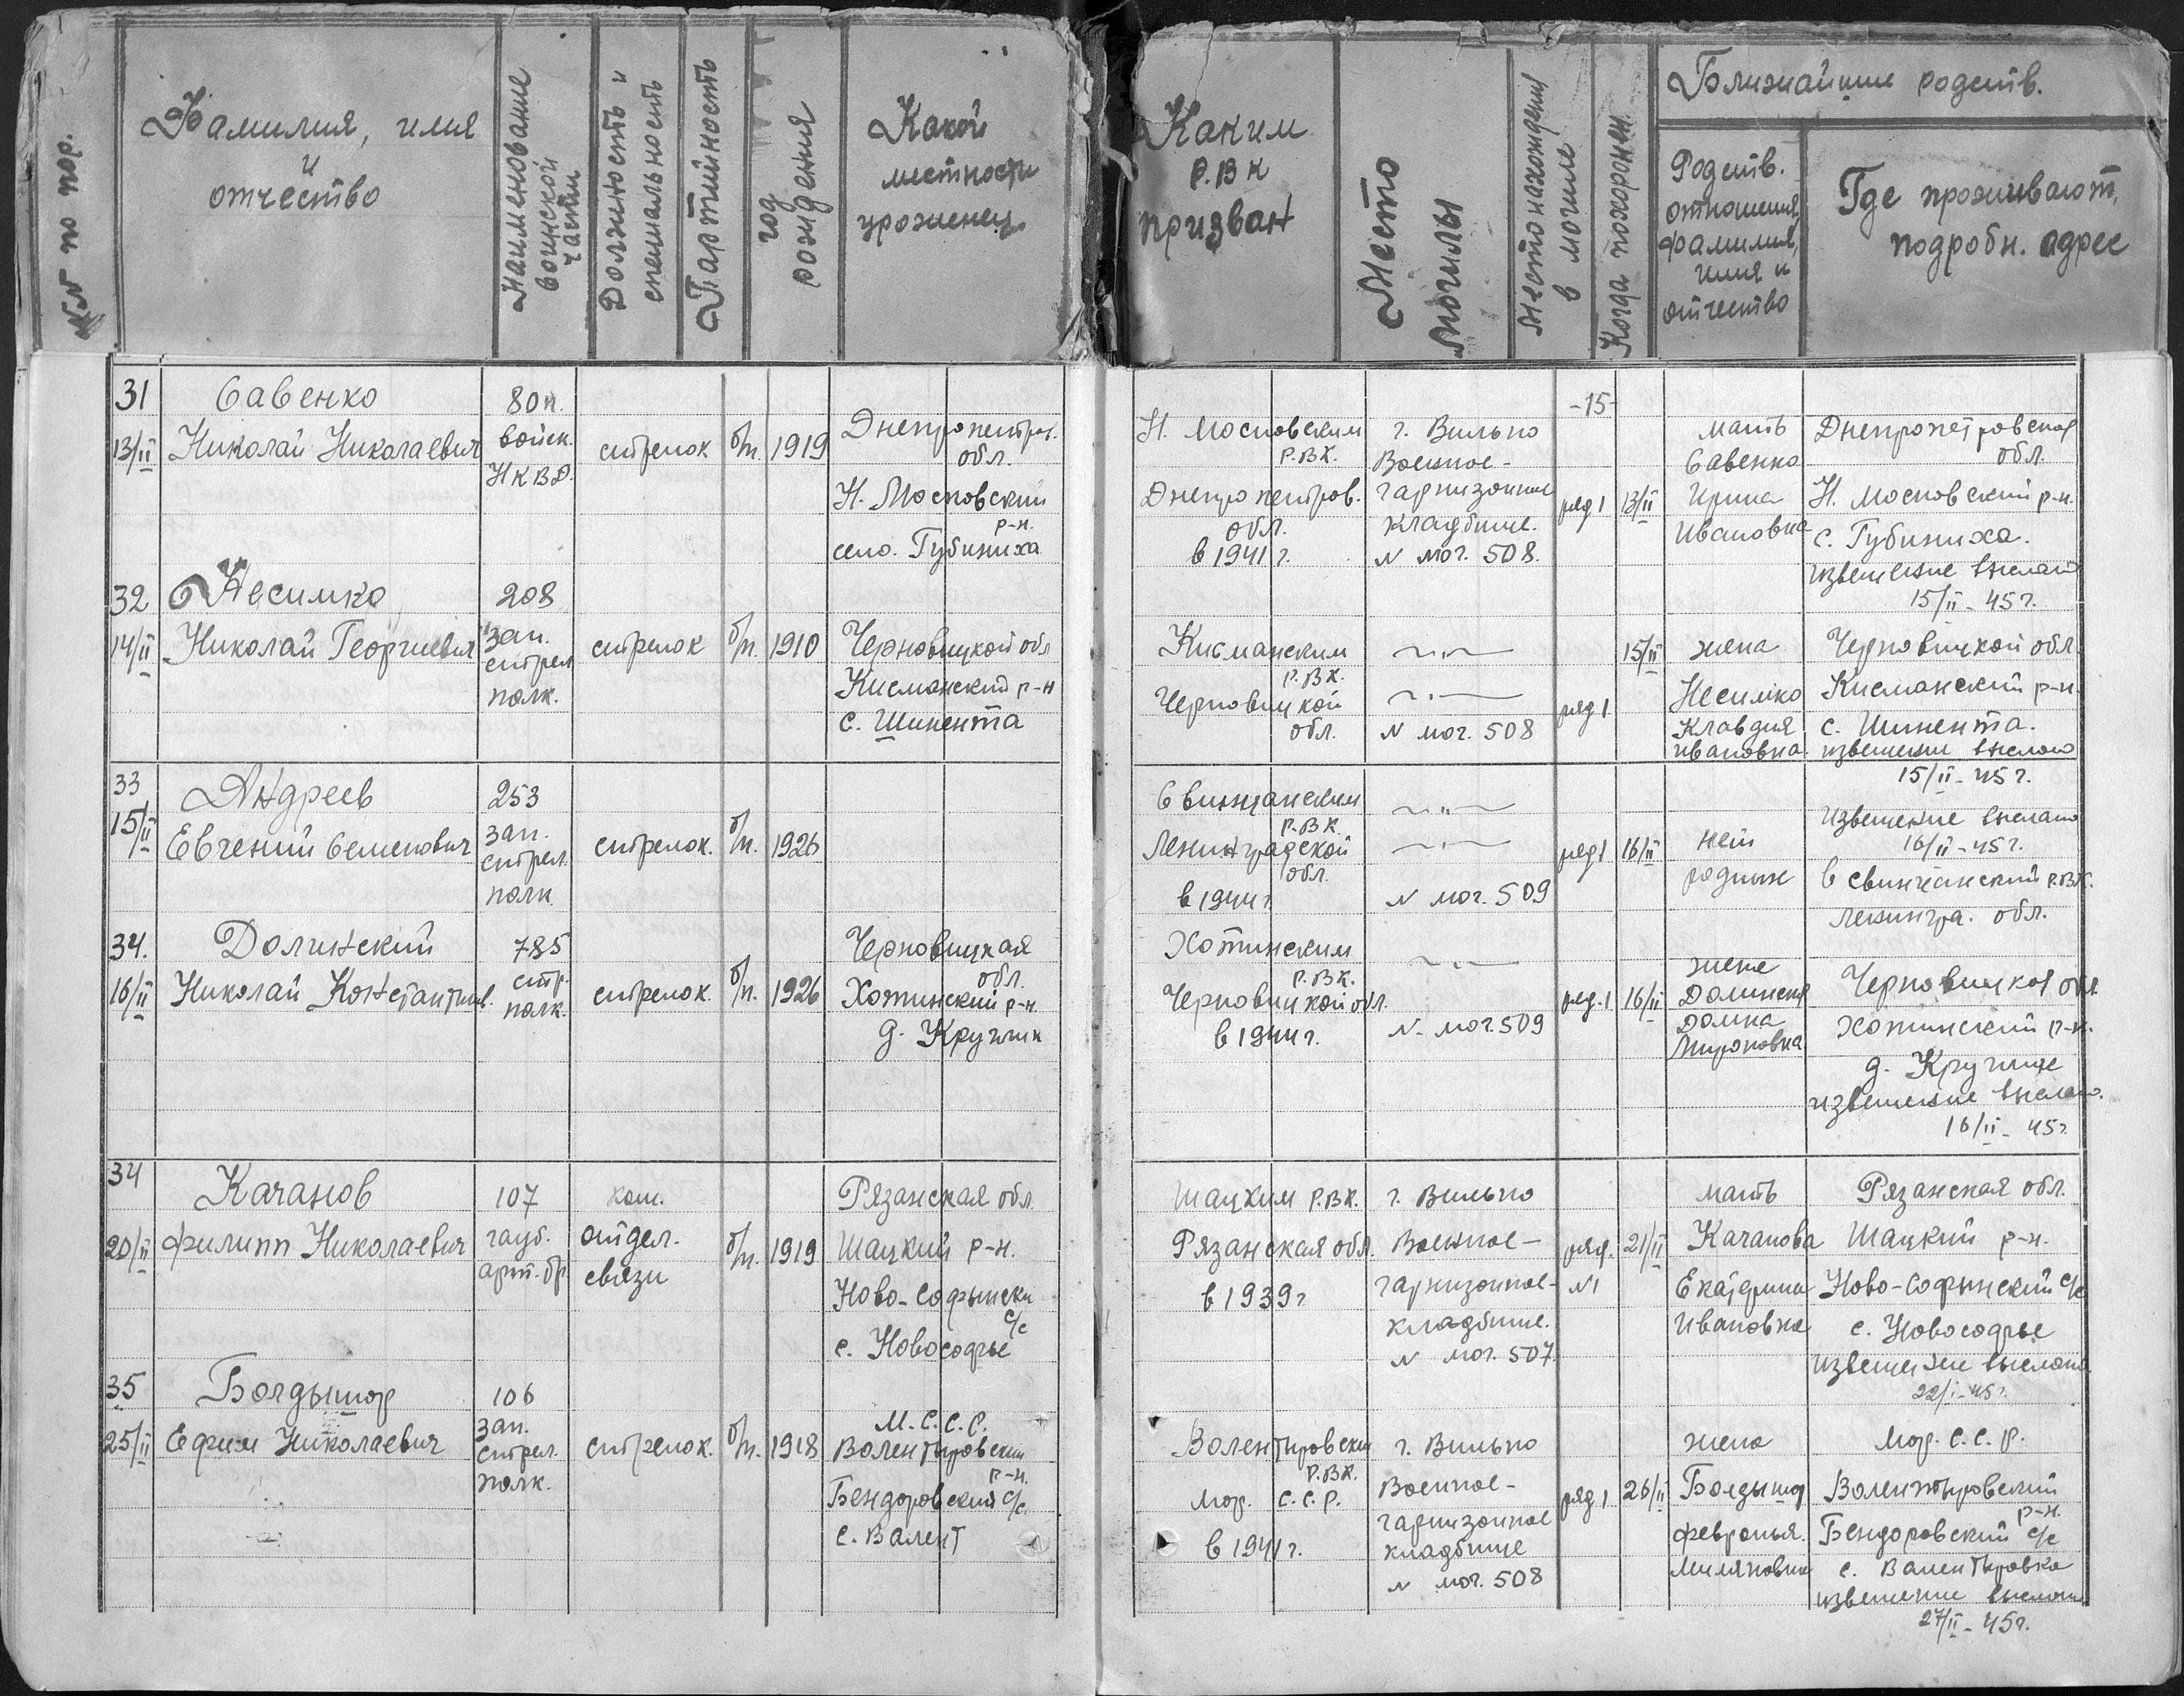 №№ по пор.
Фамилия, имя
и
отчество
Наименование
воинской
части
Должность и
специальность
Партийность
год
рождения
Какой
местности
уроженец
Каким
Р.В К
призван
Место
могилы
Местонахождения
в могиле
Когда похоронен
Ближайшие родств.
Родств.
отношения,
фамилия,
имя и
отчество
Где проживают,
подробн. адрес
31
13/II
Савенко
Николай Николаевич
80 п.
войск.
НКВД.
стрелок
б/п.
1919
Днепропетров.
обл.
Н. Московский
р-н.
село. Губиниха
Н. Московским
Р.В.К.
Днепропетров.
обл.
в 1941 г.
г. Вильно
Военное-
гарнизонное
кладбище.
N мог. 508.
-15-
ряд 1
13/II
мать
Савенко
Ирина
Ивановна
Днепропетровская
обл.
Н. Московский р-н.
с. Губиниха.
извещение выслано
15/II - 45 г.
32
14/II
Несимко
Николай Георгиевич
208
зап.
стрел
полк.
стрелок
б/п.
1910
Черновицкой обл
Кисманский р-н
с. Шинента
Кисманским
Р.В.К.
Черновицкой
обл.
~ " ~
~ " ~
N мог. 508
ряд 1
15/II
жена
Несимко
Клавдия
Ивановна
Черновицкой обл.
Кисманский р-н.
с. Шинента.
извещение выслано
15/II - 45 г.
33
15/II
Андреев
Евгений Семенович
253
зап.
стрел.
полк
стрелок.
б/п.
1926
Свинчанским
Р.В.К.
Ленинградской
обл.
в 1944 г
~ " ~
~ " ~
N мог. 509
ряд 1
16/II
нет
родных
Извещение выслано
16/II - 45 г.
в Свинчанский Р.В.К.
Ленингра. обл.
34.
16/II
Долинский
Николай Константинов.
785
стр.
полк.
стрелок.
б/п.
1926
Черновицкая
обл.
Хотинский р-н.
д. Круглик
Хотинским
Р.В.К.
Черновицкой обл.
в 1944 г.
~ " ~
N. мог. 509
ряд. 1
16/II
жена
Долинская
Домка
Мироновна
Черновицкая обл.
Хотинский р-н.
д. Круглик
извещение выслано.
16/II - 45 г
34
20/II
Качанов
Филипп Николаевич
107
гауб.
арт. бр
ком.
отдел.
связи
б/п.
1919
Рязанская обл.
Шацкий р-н.
Ново-Софьински
с/с
с. Новософье
Шацким Р.В.К.
Рязанская обл.
в 1939 г
г. Вильно
Военное-
гарнизонное-
кладбище.
N мог. 507.
ряд.
N1
21/II
мать
Качанова
Екатерина
Ивановна
Рязанская обл.
Шацкий р-н.
Ново-Софьинский с/с
с. Новософье
Извещение выслано
22/I - 45 г.
35
25/II
Болдышор
Ефим Николаевич
106
зап.
стрел.
полк.
стрелок.
б/п.
1918
М.С.С.Р.
Волентировский
р-н.
Бендоровский с/с.
с. Валент
Волентировским
Р.В.К.
Мор. С.С.Р.
в 1941 г.
г. Вильно
Военное-
гарнизонное
кладбище
N мог. 508
ряд 1
26/II
жена
Болдышор
Февронья.
Мор. С.С.Р.
Волентировский
р-н.
Бендоровский с/с
с. Валентировка
извещение выслано
27/II - 45 г.